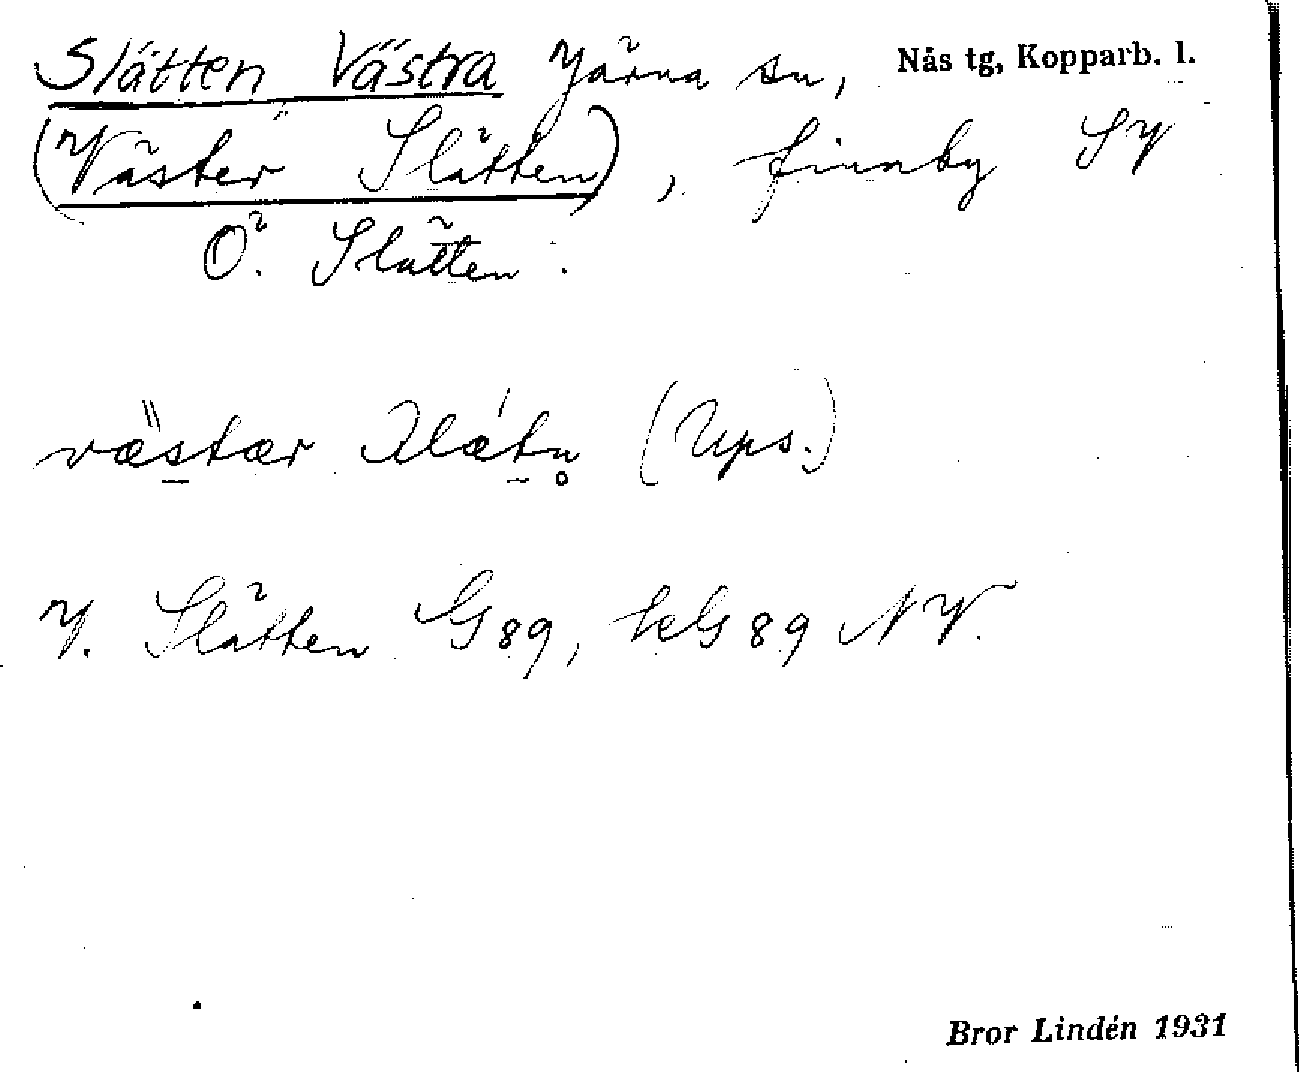 Slätten Västra Järna sn, Nås tg, Kopparb. l.
(Väster Slätten), finnby SV
Ö. Slätten.
västær slǽtn̥ (Ups.)
V. Slätten G 89, kG 89 NV.
Bror Lindén 1931